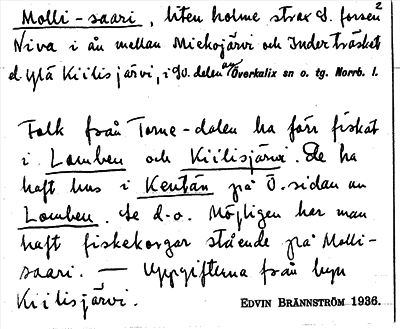 Molli-saari, liten holme strax S. forsen 2
Niva i ån mellan Mickojärvi och Inderträsket
el. Ylä Kiilisjärvi, i SO. delen av Överkalix sn o. tg. Norrb. l.
Folk från Torne-dalen ha förr fiskat
i Lomben och Kiilisjärvi. De ha
haft hus i Kentän på Ö. sidan av
Lomben. Se d.o. Möjligen har man
haft fiskekorgar stående på Molli-
saari. — Uppgifterna från byn
Kiilisjärvi.
EDVIN BRÄNNSTRÖM 1936.